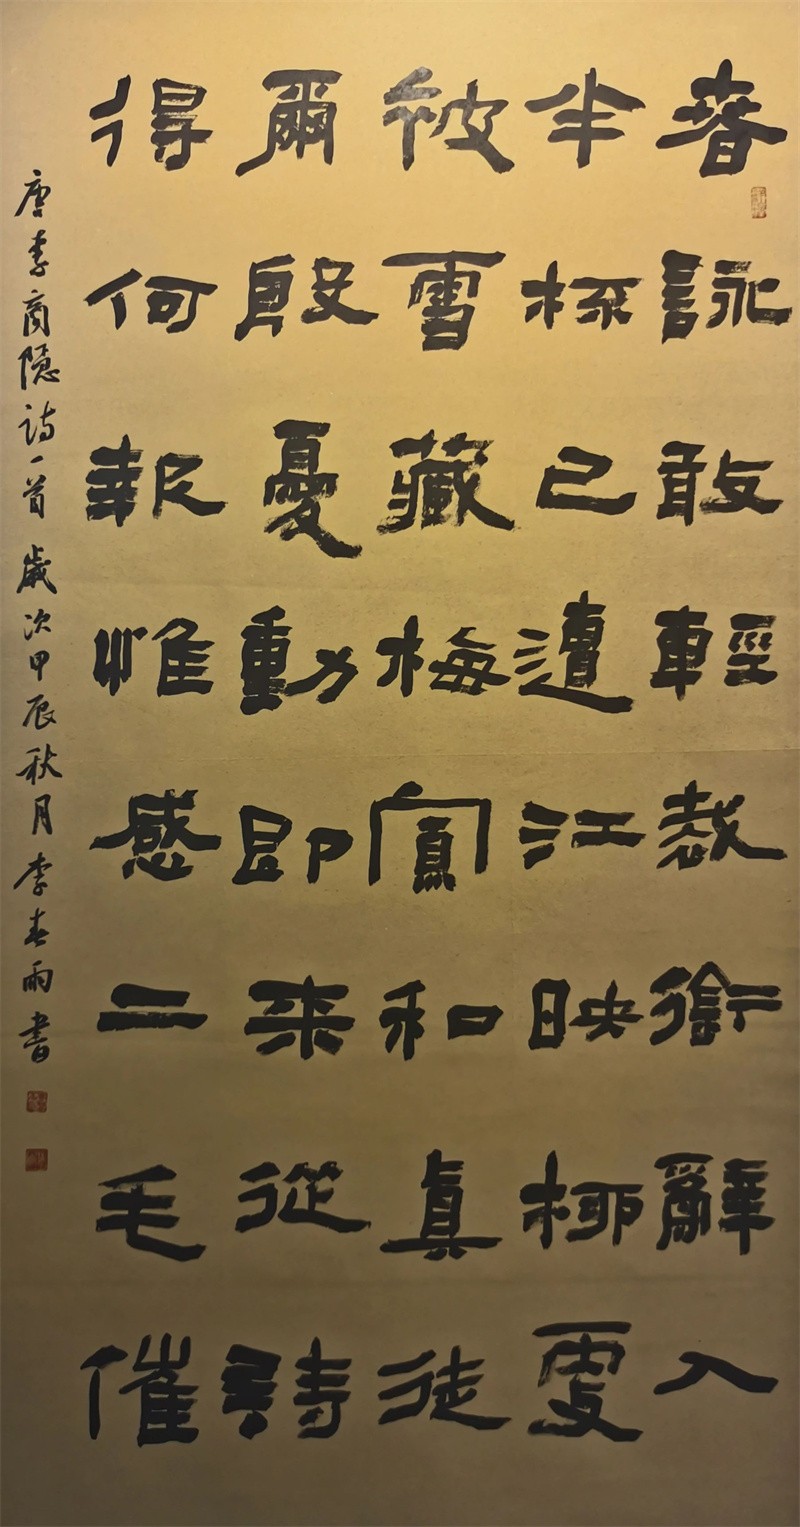 春詠敢輕裁銜辭入
半杯已遭江映柳更
被雪藏梅寡和眞徒
爾殷憂動即来從詩
得何報惟感二毛催
唐李商隐诗一首歲次甲辰秋月李春雨書